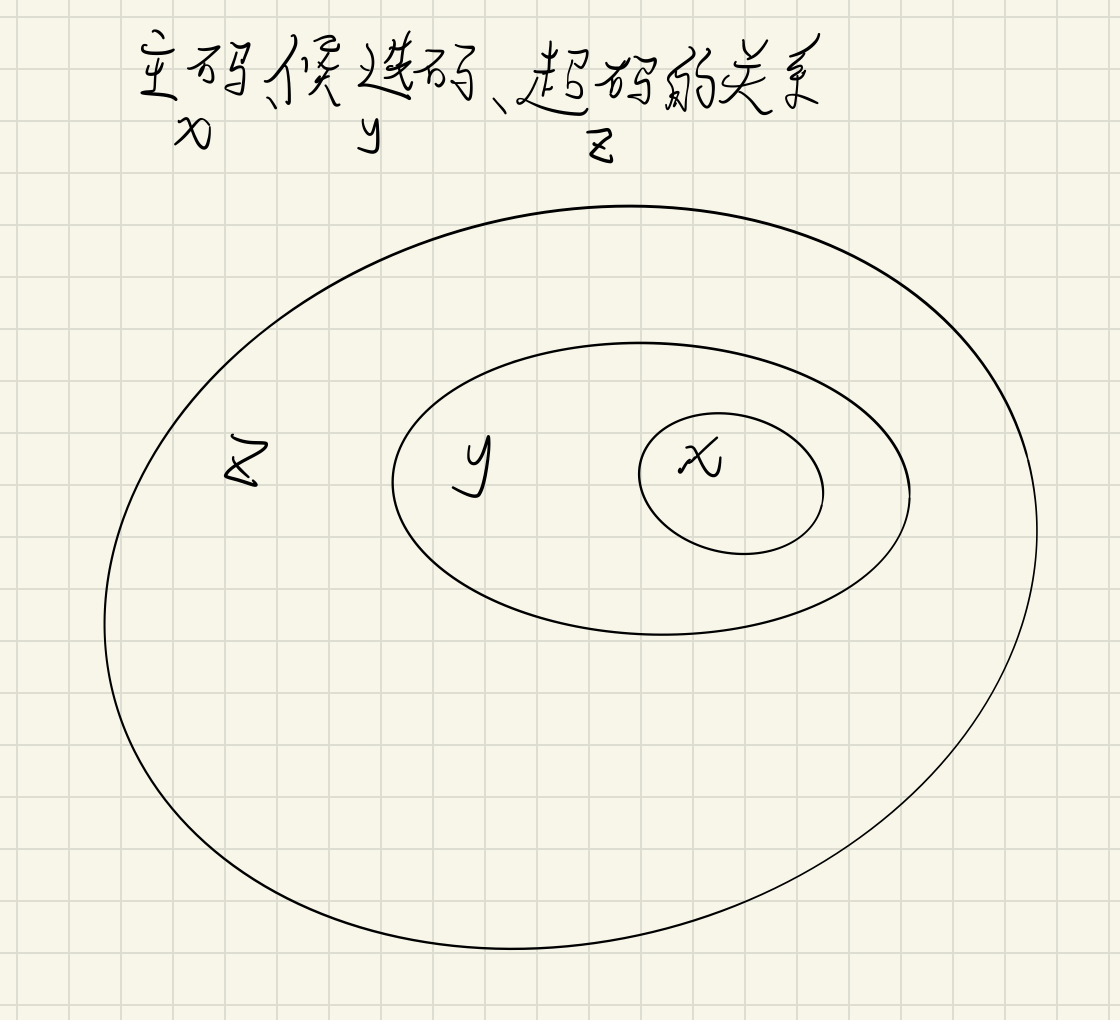 主码、候选码、超码的关系
x y z
z y x